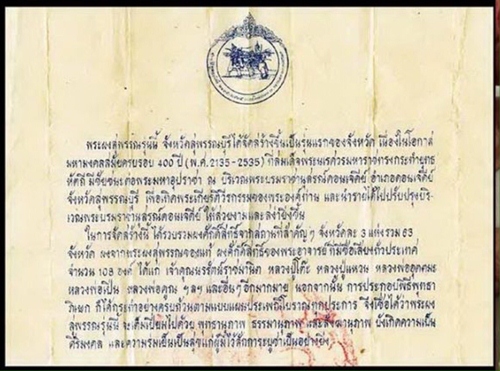 พระผงสุพรรณรุ่นนี้ จังหวัดสุพรรณบุรีได้จัดสร้างขึ้นเป็นรุ่นแรกของจังหวัด เนื่องในโอกาส
มหามงคลสมัยครบรอบ 400 ปี (พ.ศ.2135-2535) ที่สมเด็จพระนเรศวรมหาราชทรงกระทำยุทธ
หัตถี มีชัยชนะต่อพระมหาอุปราชา ณ บริเวณพระบรมราชานุสรณ์ดอนเจดีย์ อำเภอดอนเจดีย์
จังหวัดสุพรรณบุรี เพื่อเทิดพระเกียรติวีรกรรมของพระองค์ท่าน และนำรายได้ไปปรับปรุงบริ-
เวณพระบรมราชานุสรณ์ดอนเจดีย์ ให้สวยงามและสง่ายิ่งขึ้น
ในการจัดสร้างนี้ ได้รวบรวมผงศักดิ์สิทธิ์จากสถานที่สำคัญ ๆ จังหวัดละ 3 แห่งรวม 63
จังหวัด ผงจากพระผงสุพรรณของแท้ ผงศักดิ์สิทธิ์ของพระอาจารย์ ที่มีชื่อเสียงทั่วประเทศ
จำนวน 108 องค์ ได้แก่ เจ้าคุณนรรัตน์ราชมานิต หลวงปู่โต๊ะ หลวงปู่แหวน หลวงพ่ออุตตมะ
หลวงพ่อเปิ่น หลวงพ่อคูณ ฯลฯ และอื่นๆ อีกมากมาย นอกจากนั้น การประกอบพิธีพุทธา
ภิเษก ก็ได้กระทำอย่างครบถ้วนตามแบบแผนประเพณีโบราณทุกประการ จึงเชื่อได้ว่าพระผง
สุพรรณรุ่นนี้ จะเต็มเปี่ยมไปด้วย พุทธานุภาพ ธรรมานุภาพ และสังฆานุภาพ บังเกิดความเป็น
ศิริมงคล และความร่มเย็นเป็นสุขแก่ผู้มีไว้สักการะบูชาเป็นอย่างยิ่ง